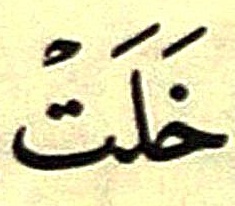 خَلَتْ